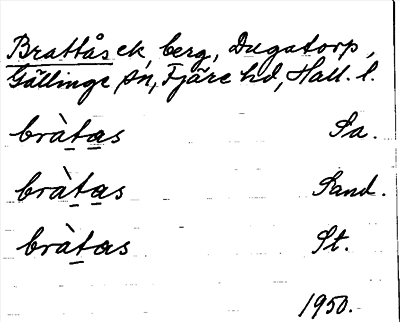 Brattås ck, berg, Dugatorp,
Gällinge sn, Fjäre hd, Hall. l.
bràtas Sa.
bràtas Sand.
bràtas St.
1950.